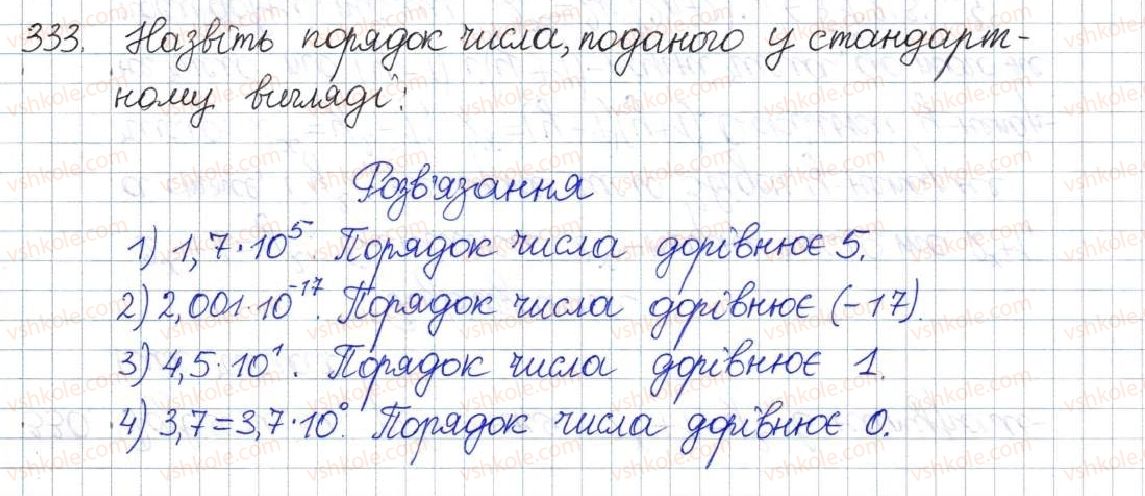 333. Назвіть порядок числа, поданого у стандарт-
ному вигляді:
Розв'язання
1) 1,7·10⁵. Порядок числа дорівнює 5.
2) 2,001·10⁻¹⁷. Порядок числа дорівнює (-17).
3) 4,5·10¹. Порядок числа дорівнює 1.
4) 3,7=3,7·10⁰. Порядок числа дорівнює 0.